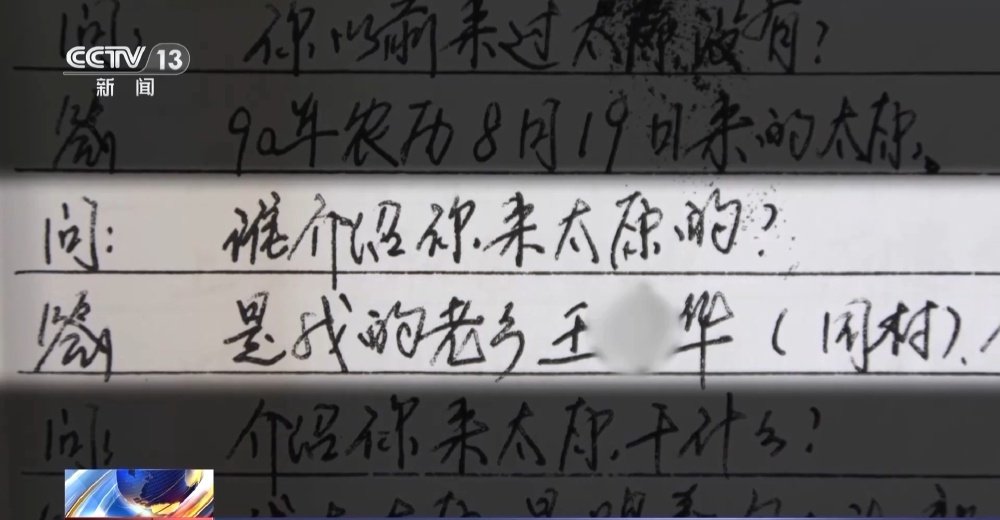 CCTV 13
新闻
问: 你以前来过太原没有?
答 90年农历8月19日来的太原。
问: 谁介绍你来太原的?
答 是我的老乡王 华(同村).
问: 介绍你来太原干什么?